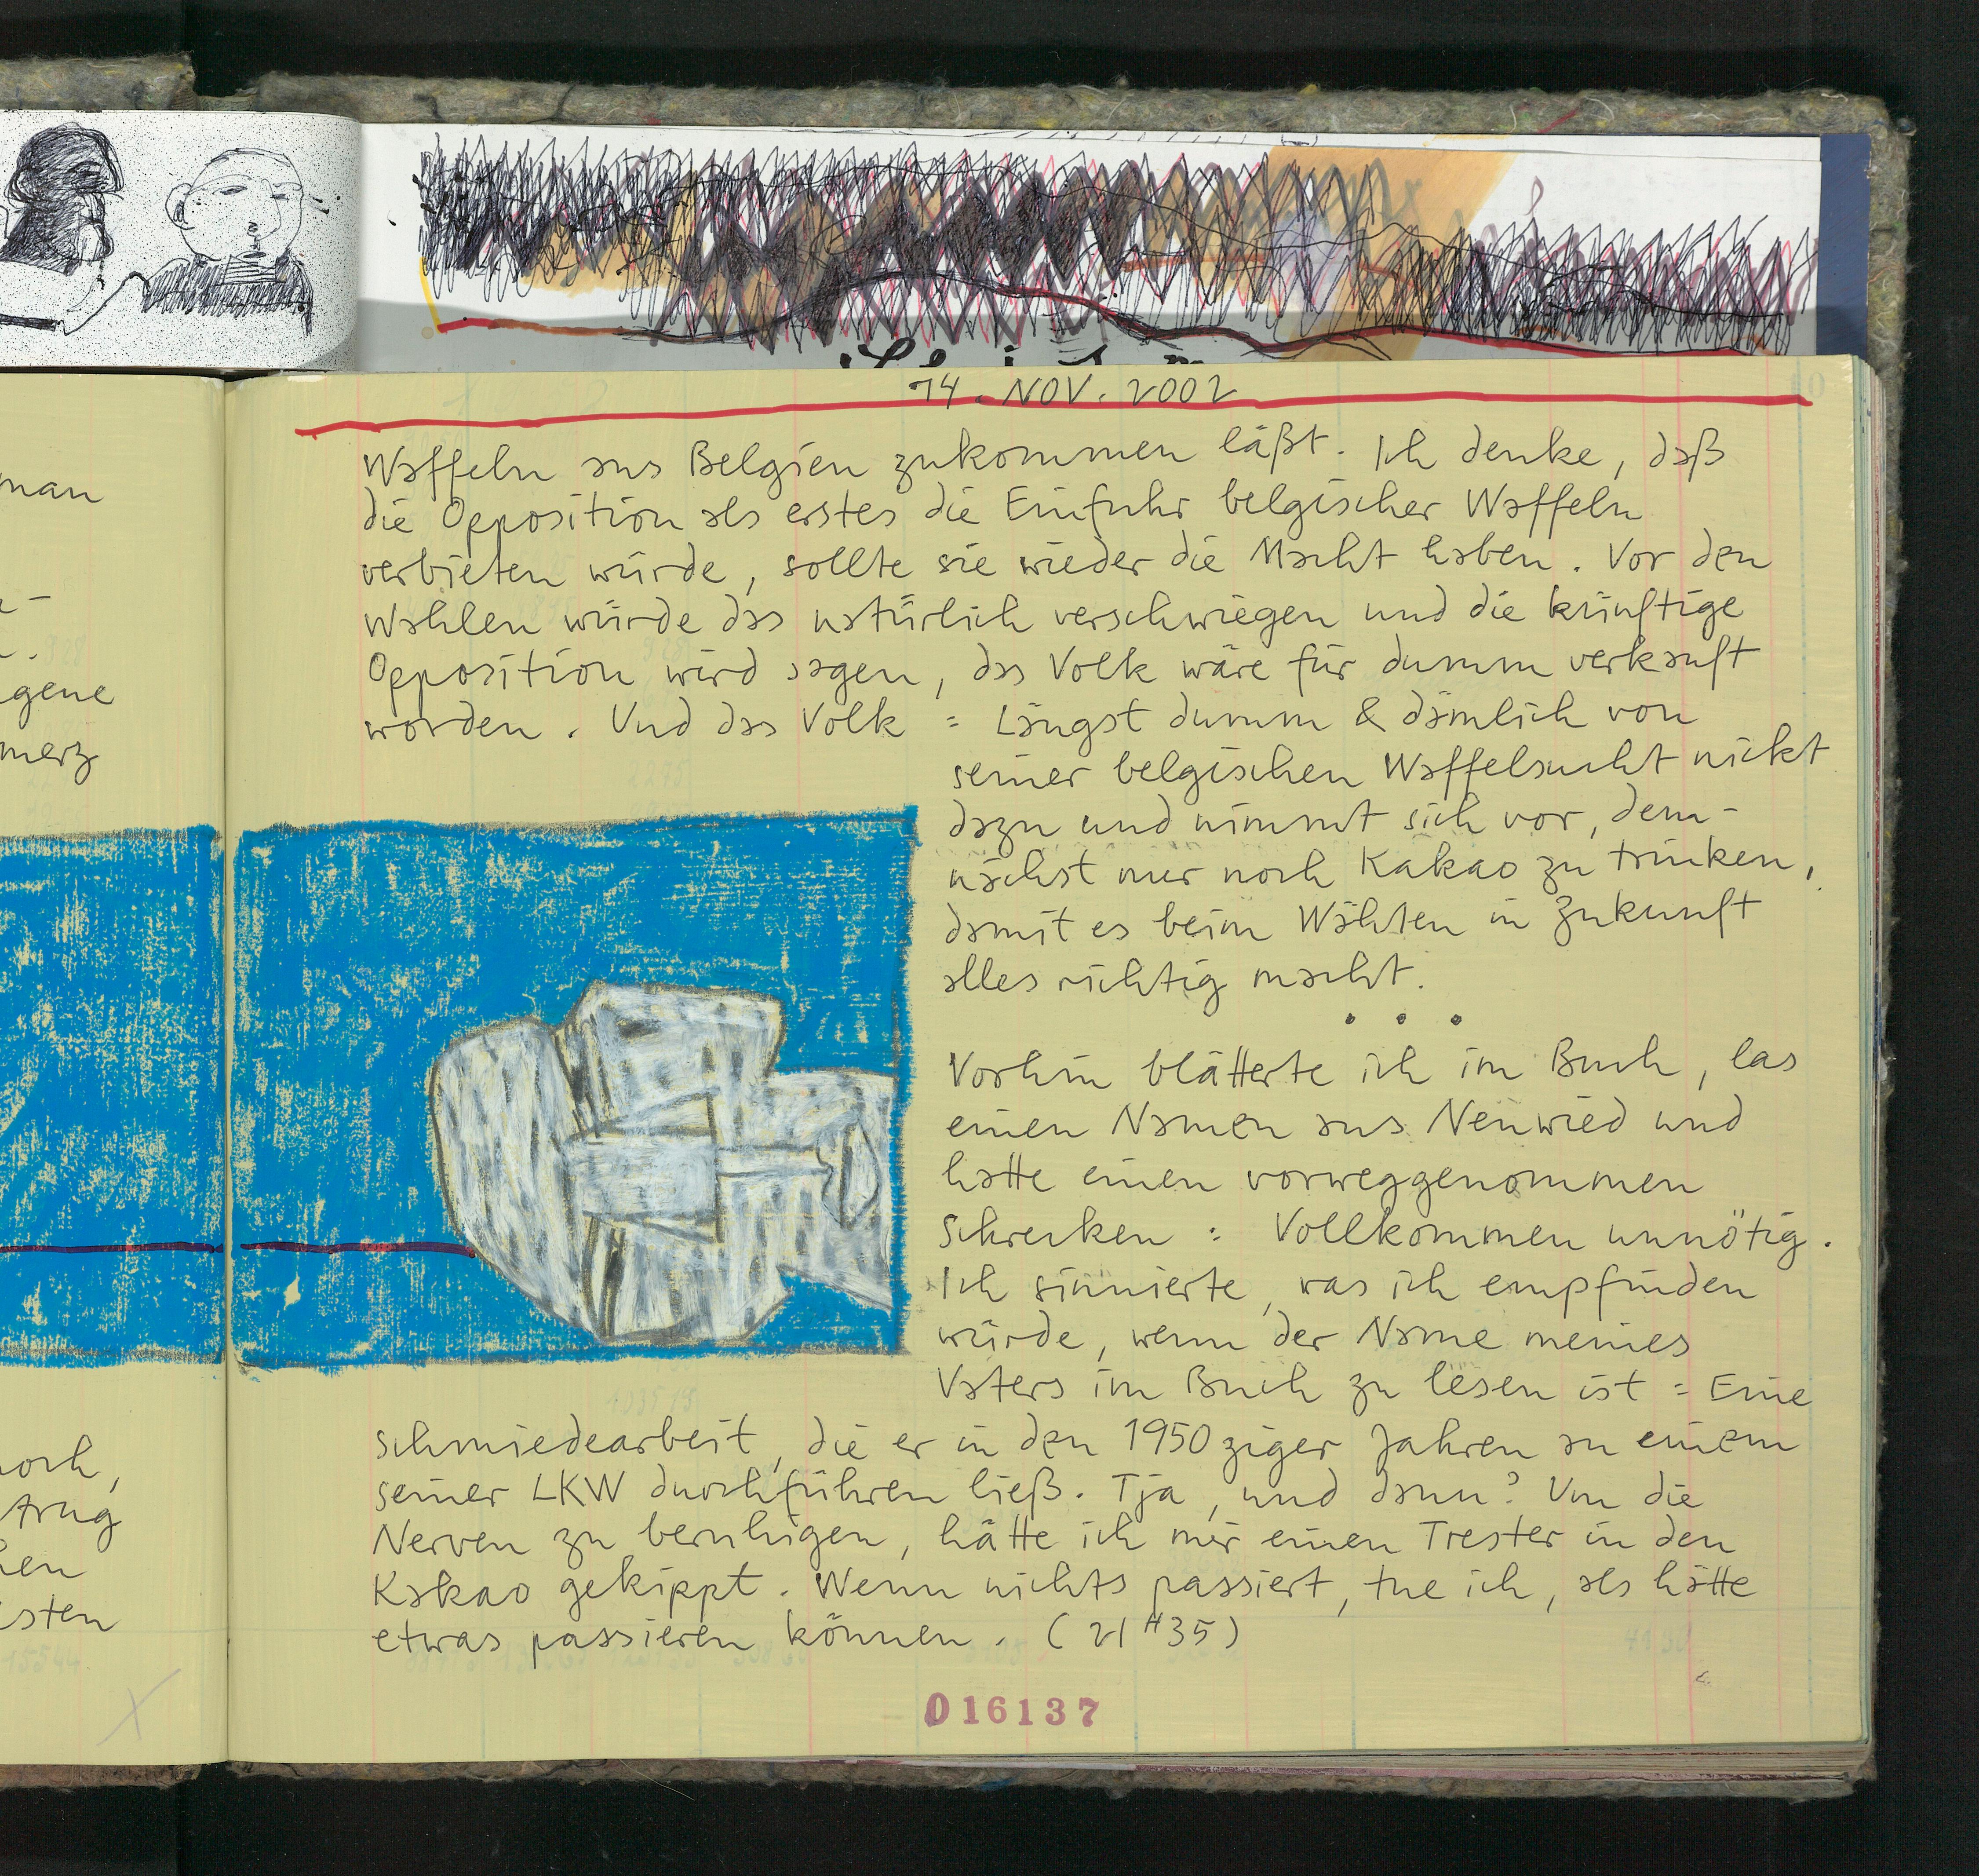 14. NOV. 2002
Waffeln aus Belgien zukommen läßt. Ich denke, daß
die Opposition als erstes die Einfuhr belgischer Waffeln
verbieten würde, sollte sie wieder die Macht haben. Vor den
Wahlen würde das natürlich verschwiegen und die künftige
Opposition wird sagen, das Volk wäre für dumm verkauft
worden. Und das Volk = Längst dumm & dämlich von
seiner belgischen Waffelsucht nickt
dazu und nimmt sich vor, dem-
nächst nur noch Kakao zu trinken,
damit es beim Wählen in Zukunft
alles richtig macht.
. . .
Vorhin blätterte ich im Buch, las
einen Namen aus Neuwied und
hatte einen vorweggenommen
Schrecken : Vollkommen unnötig.
Ich sinnierte, was ich empfinden
würde, wenn der Name meines
Vaters im Buch zu lesen ist = Eine
Schmiedearbeit, die er in den 1950ziger Jahren an einem
seiner LKW durchführen ließ. Tja, und dann? Um die
Nerven zu beruhigen, hätte ich mir einen Trester in den
Kakao gekippt. Wenn nichts passiert, tue ich, als hätte
etwas passieren können. (21 H 35)
016137
man
gene
merz
noch,
trug
hen
isten